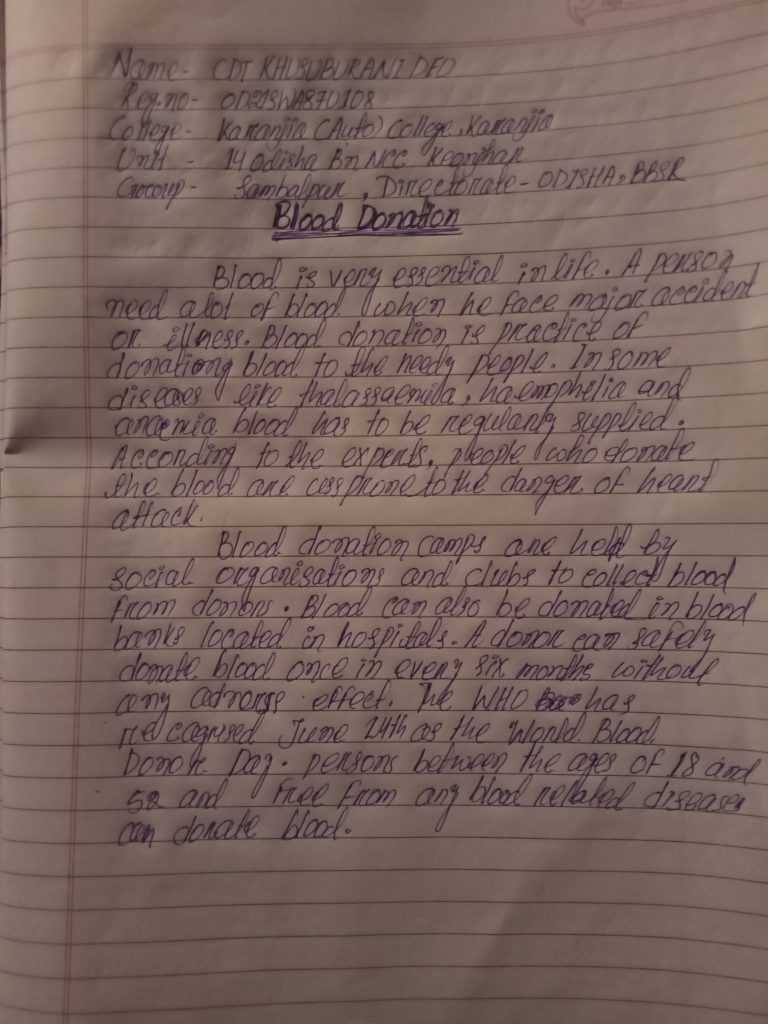 Name- CDT KHUSUBURANI DEO
Reg.no- OD21SWA870108
College- Karanjia (Auto) College, Karanjia
Unit - 14 Odisha Bn NCC Keonjhar
Sambalpur, Directorate- ODISHA, BBSR
Blood Donation
Blood is very essential in life. A person
need a lot of blood when he face major accident
or illness. Blood donation is practice of
donationg blood to the needy people. In some
diseases like thalassaemila, haemophelia and
anaemia blood has to be regularly supplied.
According to the experts, pleople who donate
the blood are less prone to the danger of heart
attack.
Blood donation camps are held by
social organisations and clubs to collect blood
from donors. Blood can also be donated in blood
banks located in hospitals. A donor can safely
donate blood once in every six months without
any effect. The WHO has
recognised June 24th as the World Blood
Donor Day. persons between the ages of 18 and
52 and free from any blood related diseases
can donate blood.